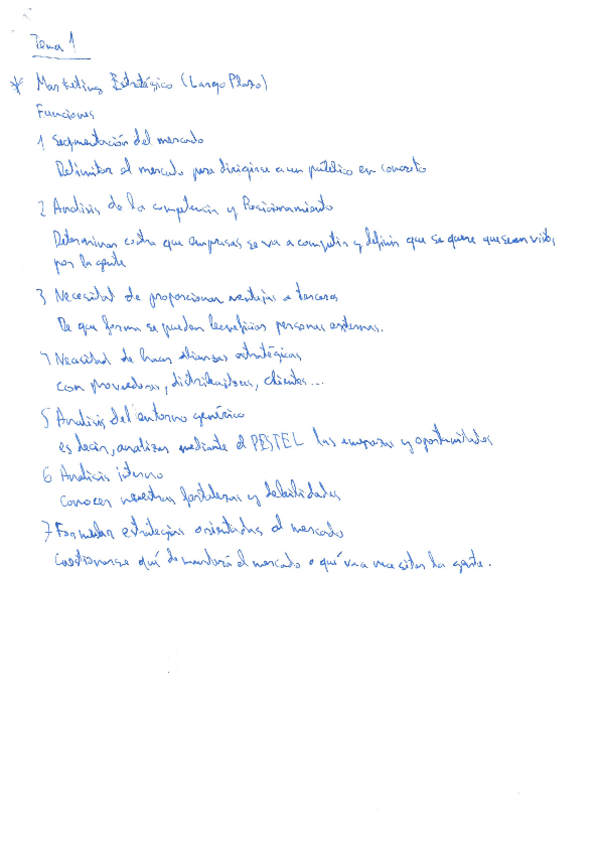 Tema 1
* Marketing Estratégico (Largo Plazo)
Funciones
1 Segmentación del mercado
Delimitar el mercado para dirigirse a un público en concreto
2 Analisis de la competencia y Posicionamiento
Determinar contra que empresas se va a competir y definir que se quere que sean visto,
por la gente
3 Necesidad de proporcionar ventajas a terceros
De que forma se pueden beneficiar personas externas.
4 Necesidad de hacer alianzas estratégicas
con proveedores, distribuidores, clientes...
5 Analisis del entorno genérico
es decir, analizar mediante el PESTEL las amenazas y oportunidades
6 Analisis interno
Conocer nuestras fortalezas y debilidades
7 Formular estrategias orientadas al mercado
Cuestionarse qué demandará el mercado o qué va a necesitar la gente.